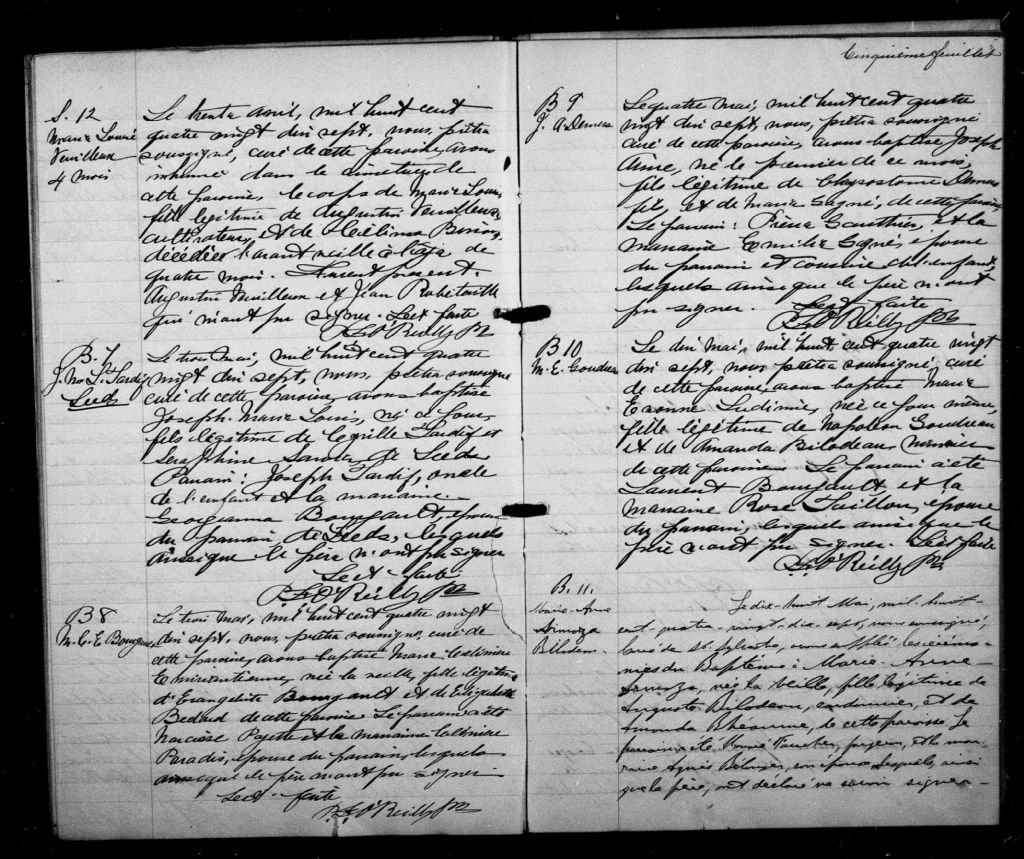 S. 12
Marie Louise
Veuilleux
4 mois
Le trente avril, mil huit cent
quatre vingt dix sept, nous, prêtre
soussigné, curé de cette paroisse, avons
inhumé dans le cimetière de
cette paroisse, le corps de Marie Louise,
fille légitime de Augustin Veuilleux,
cultivateur, et de Hélima
décédée l'avant veille à l'âge de
quatre mois. Furent présent,
Augustin Veuilleux et Jean Robitaille
qui n'ont pu signer. Lect. faite
O'Reilly Ptre
B. 7
L. Tardif
Leeds
Le trois mai, mil huit cent quatre
vingt dix sept, nous, prêtre soussigné
curé de cette paroisse, avons baptisé
Joseph Marie Louis, né ce jour,
fils légitime de Cyrille Tardif et
Seraphine de Leeds
Parrain: Joseph Tardif, oncle
de l'enfant et la marraine
Georgianna Bourgault, épouse
du parrain de Leeds, lesquels
ainsi que le père n'ont pu signer
Lect faite
O'Reilly Ptre
B 8
M. C. E. Bourgault
Le trois mai, mil huit cent quatre vingt
dix sept, nous, prêtre soussigné, curé de
cette paroisse, avons baptisé Marie Celinière
Emerentienne, née la veille, fille légitime
d'Evangeliste Bourgault et de Elizabeth
Bedard de cette paroisse. Le parrain a été
Narcisse Payette et la marraine Celinière
Paradis, épouse du parrain, lesquels
ainsi que le père n'ont pu signer
Lect faite
O'Reilly Ptre
Cinquième feuillet
B 9
J. A. Demers
Le quatre mai, mil huit cent quatre
vingt dix sept, nous, prêtre soussigné
curé de cette paroisse, avons baptisé Joseph
Aimé, né le premier de ce mois,
fils légitime de Chrysostome Demers
fils et de Marie Gagné, de cette paroisse
Le parrain: Pierre Gauthier, et la
marraine Emilie Gagné, épouse
du parrain et cousine de l'enfant
lesquels ainsi que le père n'ont
pu signer. Lect faite
O'Reilly Ptre
B 10
M. E. Goudreau
Le dix mai, mil huit cent quatre vingt
dix sept, nous prêtre soussigné, curé
de cette paroisse, avons baptisé Marie
Exonne Ludimie, née ce jour même,
fille légitime de Napoléon Goudreau
et de Amanda Bilodeau
de cette paroisse. Le parrain a été
Laurent Bourgault et la
marraine Rose Taillon, épouse
du parrain, lesquels ainsi que le
père n'ont pu signer. Lect faite
O'Reilly Ptre
B. 11.
Marie-Anne
Arméza
Billodeau.
Le dix-huit Mai, mil-huit-
cent-quatre-vingt-dix-sept, nous soussigné,
Curé de St. Sylvestre, avons suppléé les cérémo-
nies du Baptême à Marie-Anne-
Arméza, née la veille, fille légitime de
Auguste Bilodeau, cordonnier, et de
Amanda de cette paroisse. Le
parrain a été Honoré Faucher, forgeron, et la mar-
raine Agnès Bélanger, son épouse lesquels, ainsi
que le père, ont déclaré ne savoir signer-